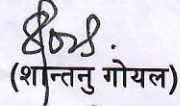 (शान्तनु गोयल)